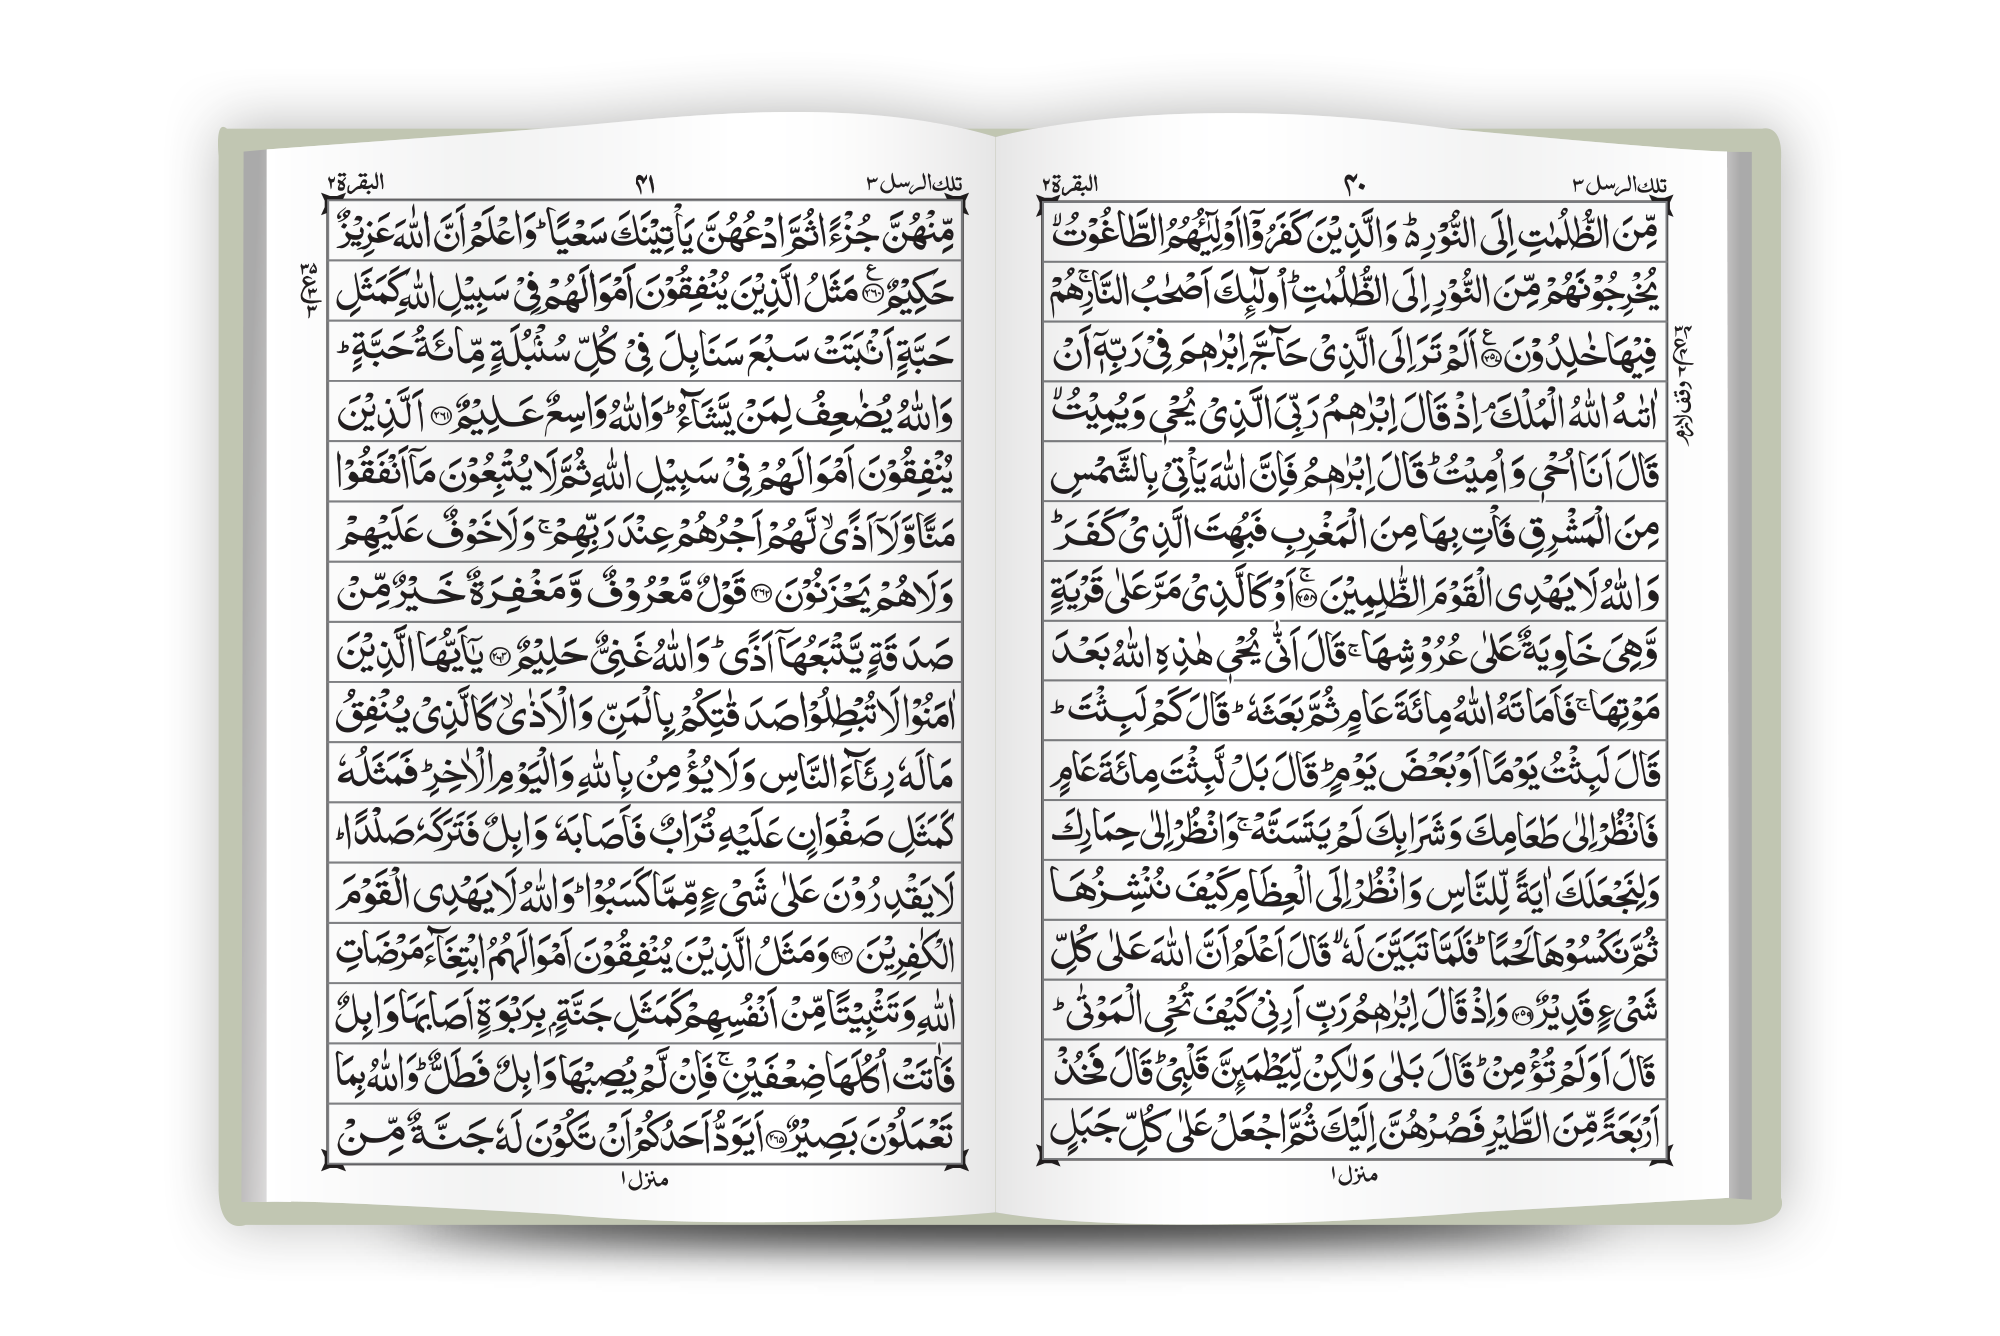 تلك الرسل ٣
۴۰
البقرة ٢
مِّنَ الظُّلُمٰتِ اِلَى النُّوْرِ ؕ۬ وَالَّذِيْنَ كَفَرُوْۤا اَوْلِيٰٓـُٔهُمُ الطَّاغُوْتُ ۙ
يُخْرِجُوْنَهُمْ مِّنَ النُّوْرِ اِلَى الظُّلُمٰتِ ؕ اُولٰٓئِكَ اَصْحٰبُ النَّارِ ۚ هُمْ
فِيْهَا خٰلِدُوْنَ ﴿۲۵۷﴾ ع اَلَمْ تَرَ اِلَى الَّذِيْ حَآجَّ اِبْرٰهٖمَ فِيْ رَبِّهٖۤ اَنْ
اٰتٰىهُ اللّٰهُ الْمُلْكَ ۘ اِذْ قَالَ اِبْرٰهٖمُ رَبِّيَ الَّذِيْ يُحْيٖ وَيُمِيْتُ ۙ
قَالَ اَنَا اُحْيٖ وَاُمِيْتُ ؕ قَالَ اِبْرٰهٖمُ فَاِنَّ اللّٰهَ يَاْتِيْ بِالشَّمْسِ
مِنَ الْمَشْرِقِ فَاْتِ بِهَا مِنَ الْمَغْرِبِ فَبُهِتَ الَّذِيْ كَفَرَ ؕ
وَاللّٰهُ لَا يَهْدِى الْقَوْمَ الظّٰلِمِيْنَ ﴿۲۵۸﴾ ۚ اَوْ كَالَّذِيْ مَرَّ عَلٰى قَرْيَةٍ
وَّهِيَ خَاوِيَةٌ عَلٰى عُرُوْشِهَا ۚ قَالَ اَنّٰى يُحْيٖ هٰذِهِ اللّٰهُ بَعْدَ
مَوْتِهَا ۚ فَاَمَاتَهُ اللّٰهُ مِائَةَ عَامٍ ثُمَّ بَعَثَهٗ ؕ قَالَ كَمْ لَبِثْتَ ؕ
قَالَ لَبِثْتُ يَوْمًا اَوْ بَعْضَ يَوْمٍ ؕ قَالَ بَلْ لَّبِثْتَ مِائَةَ عَامٍ
فَانْظُرْ اِلٰى طَعَامِكَ وَشَرَابِكَ لَمْ يَتَسَنَّهْ ۚ وَانْظُرْ اِلٰى حِمَارِكَ
وَلِنَجْعَلَكَ اٰيَةً لِّلنَّاسِ وَانْظُرْ اِلَى الْعِظَامِ كَيْفَ نُنْشِزُهَا
ثُمَّ نَكْسُوْهَا لَحْمًا ؕ فَلَمَّا تَبَيَّنَ لَهٗ ۙ قَالَ اَعْلَمُ اَنَّ اللّٰهَ عَلٰى كُلِّ
شَيْءٍ قَدِيْرٌ ﴿۲۵۹﴾ وَاِذْ قَالَ اِبْرٰهٖمُ رَبِّ اَرِنِيْ كَيْفَ تُحْيِ الْمَوْتٰى ؕ
قَالَ اَوَلَمْ تُؤْمِنْ ؕ قَالَ بَلٰى وَلٰكِنْ لِّيَطْمَئِنَّ قَلْبِيْ ؕ قَالَ فَخُذْ
اَرْبَعَةً مِّنَ الطَّيْرِ فَصُرْهُنَّ اِلَيْكَ ثُمَّ اجْعَلْ عَلٰى كُلِّ جَبَلٍ
وقف لازم
منزل ١
تلك الرسل ٣
۴۱
البقرة ٢
مِّنْهُنَّ جُزْءًا ثُمَّ ادْعُهُنَّ يَاْتِيْنَكَ سَعْيًا ؕ وَاعْلَمْ اَنَّ اللّٰهَ عَزِيْزٌ
حَكِيْمٌ ﴿۲۶۰﴾ ع مَثَلُ الَّذِيْنَ يُنْفِقُوْنَ اَمْوَالَهُمْ فِيْ سَبِيْلِ اللّٰهِ كَمَثَلِ
حَبَّةٍ اَنْۢبَتَتْ سَبْعَ سَنَابِلَ فِيْ كُلِّ سُنْۢبُلَةٍ مِّائَةُ حَبَّةٍ ؕ
وَاللّٰهُ يُضٰعِفُ لِمَنْ يَّشَآءُ ؕ وَاللّٰهُ وَاسِعٌ عَلِيْمٌ ﴿۲۶۱﴾ اَلَّذِيْنَ
يُنْفِقُوْنَ اَمْوَالَهُمْ فِيْ سَبِيْلِ اللّٰهِ ثُمَّ لَا يُتْبِعُوْنَ مَاۤ اَنْفَقُوْا
مَنًّا وَّلَاۤ اَذًى ۙ لَّهُمْ اَجْرُهُمْ عِنْدَ رَبِّهِمْ ۚ وَلَا خَوْفٌ عَلَيْهِمْ
وَلَا هُمْ يَحْزَنُوْنَ ﴿۲۶۲﴾ قَوْلٌ مَّعْرُوْفٌ وَّمَغْفِرَةٌ خَيْرٌ مِّنْ
صَدَقَةٍ يَّتْبَعُهَاۤ اَذًى ؕ وَاللّٰهُ غَنِيٌّ حَلِيْمٌ ﴿۲۶۳﴾ يٰۤاَيُّهَا الَّذِيْنَ
اٰمَنُوْا لَا تُبْطِلُوْا صَدَقٰتِكُمْ بِالْمَنِّ وَالْاَذٰى ۙ كَالَّذِيْ يُنْفِقُ
مَالَهٗ رِئَآءَ النَّاسِ وَلَا يُؤْمِنُ بِاللّٰهِ وَالْيَوْمِ الْاٰخِرِ ؕ فَمَثَلُهٗ
كَمَثَلِ صَفْوَانٍ عَلَيْهِ تُرَابٌ فَاَصَابَهٗ وَابِلٌ فَتَرَكَهٗ صَلْدًا ؕ
لَا يَقْدِرُوْنَ عَلٰى شَيْءٍ مِّمَّا كَسَبُوْا ؕ وَاللّٰهُ لَا يَهْدِى الْقَوْمَ
الْكٰفِرِيْنَ ﴿۲۶۴﴾ وَمَثَلُ الَّذِيْنَ يُنْفِقُوْنَ اَمْوَالَهُمُ ابْتِغَآءَ مَرْضَاتِ
اللّٰهِ وَتَثْبِيْتًا مِّنْ اَنْفُسِهِمْ كَمَثَلِ جَنَّةٍۭ بِرَبْوَةٍ اَصَابَهَا وَابِلٌ
فَاٰتَتْ اُكُلَهَا ضِعْفَيْنِ ۚ فَاِنْ لَّمْ يُصِبْهَا وَابِلٌ فَطَلٌّ ؕ وَاللّٰهُ بِمَا
تَعْمَلُوْنَ بَصِيْرٌ ﴿۲۶۵﴾ اَيَوَدُّ اَحَدُكُمْ اَنْ تَكُوْنَ لَهٗ جَنَّةٌ مِّنْ
منزل ١